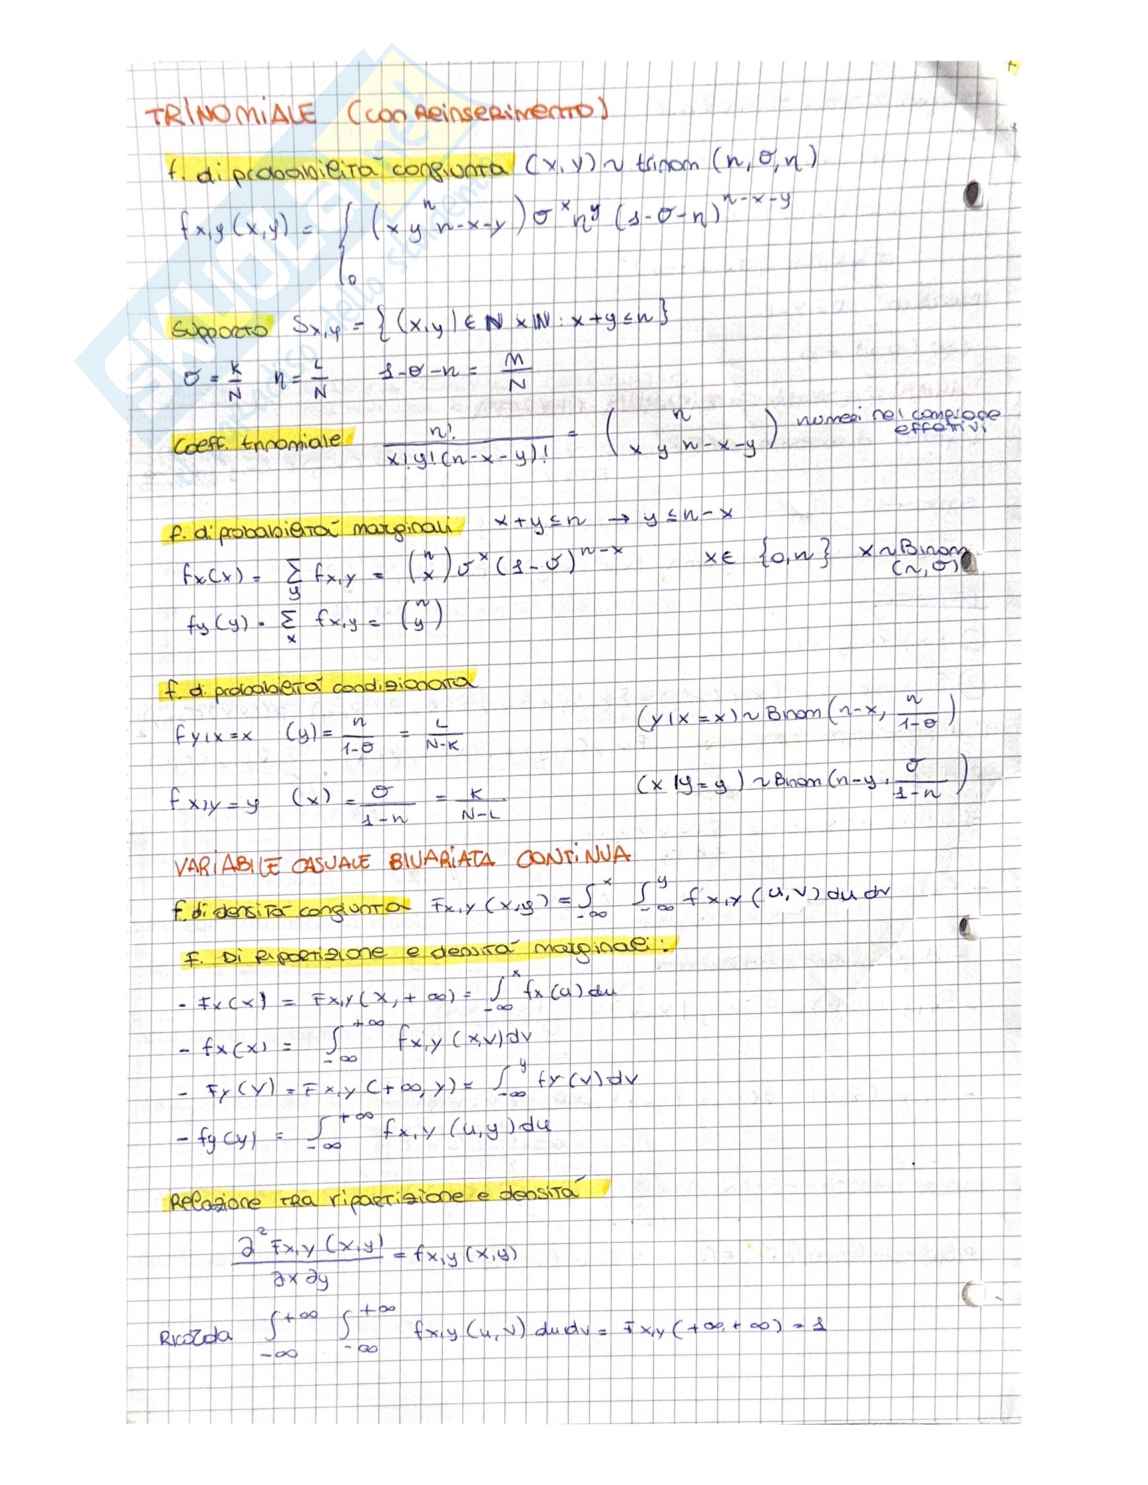 TRINOMIALE (con Reinserimento)
f. di probabilità congiunta (x,y) ~ trinom (n, σ, η)
fx,y(x,y) = { (n x y n-x-y) σ^x η^y (1-σ-η)^n-x-y
0
Supporto Sx,y = {(x,y) ∈ N x N : x+y ≤ n}
σ = K/N η = L/N 1-σ-η = M/N
Coeff. trinomiale n!/x!y!(n-x-y)! = (n x y n-x-y) numeri nel campione effettivi
f. di probabilità marginali x+y ≤ n → y ≤ n-x
fx(x) = Σy fx,y = (n x) σ^x (1-σ)^n-x x ∈ {0,n} x ~ Binom (n, σ)
fy(y) = Σx fx,y = (n y)
f. di probabilità condizionata
fy|x=x (y) = η/1-σ = L/N-K (y|x=x) ~ Binom (n-x, η/1-σ)
fx|y=y (x) = σ/1-η = K/N-L (x|y=y) ~ Binom (n-y, σ/1-η)
VARIABILE CASUALE BIVARIATA CONTINUA
f. di densità congiunta Fx,y (x,y) = ∫-∞^x ∫-∞^y fx,y (u,v) du dv
F. Di Ripartizione e densità marginali:
- Fx(x) = Fx,y(x, +∞) = ∫-∞^x fx(u) du
- fx(x) = ∫-∞^+∞ fx,y (x,v) dv
- Fy(y) = Fx,y (+∞, y) = ∫-∞^y fy(v) dv
- fy(y) = ∫-∞^+∞ fx,y (u,y) du
Relazione TRA ripartizione e densità
∂²Fx,y (x,y)/∂x ∂y = fx,y (x,y)
Ricorda ∫-∞^+∞ ∫-∞^+∞ fx,y (u,v) du dv = Fx,y (+∞,+∞) = 1